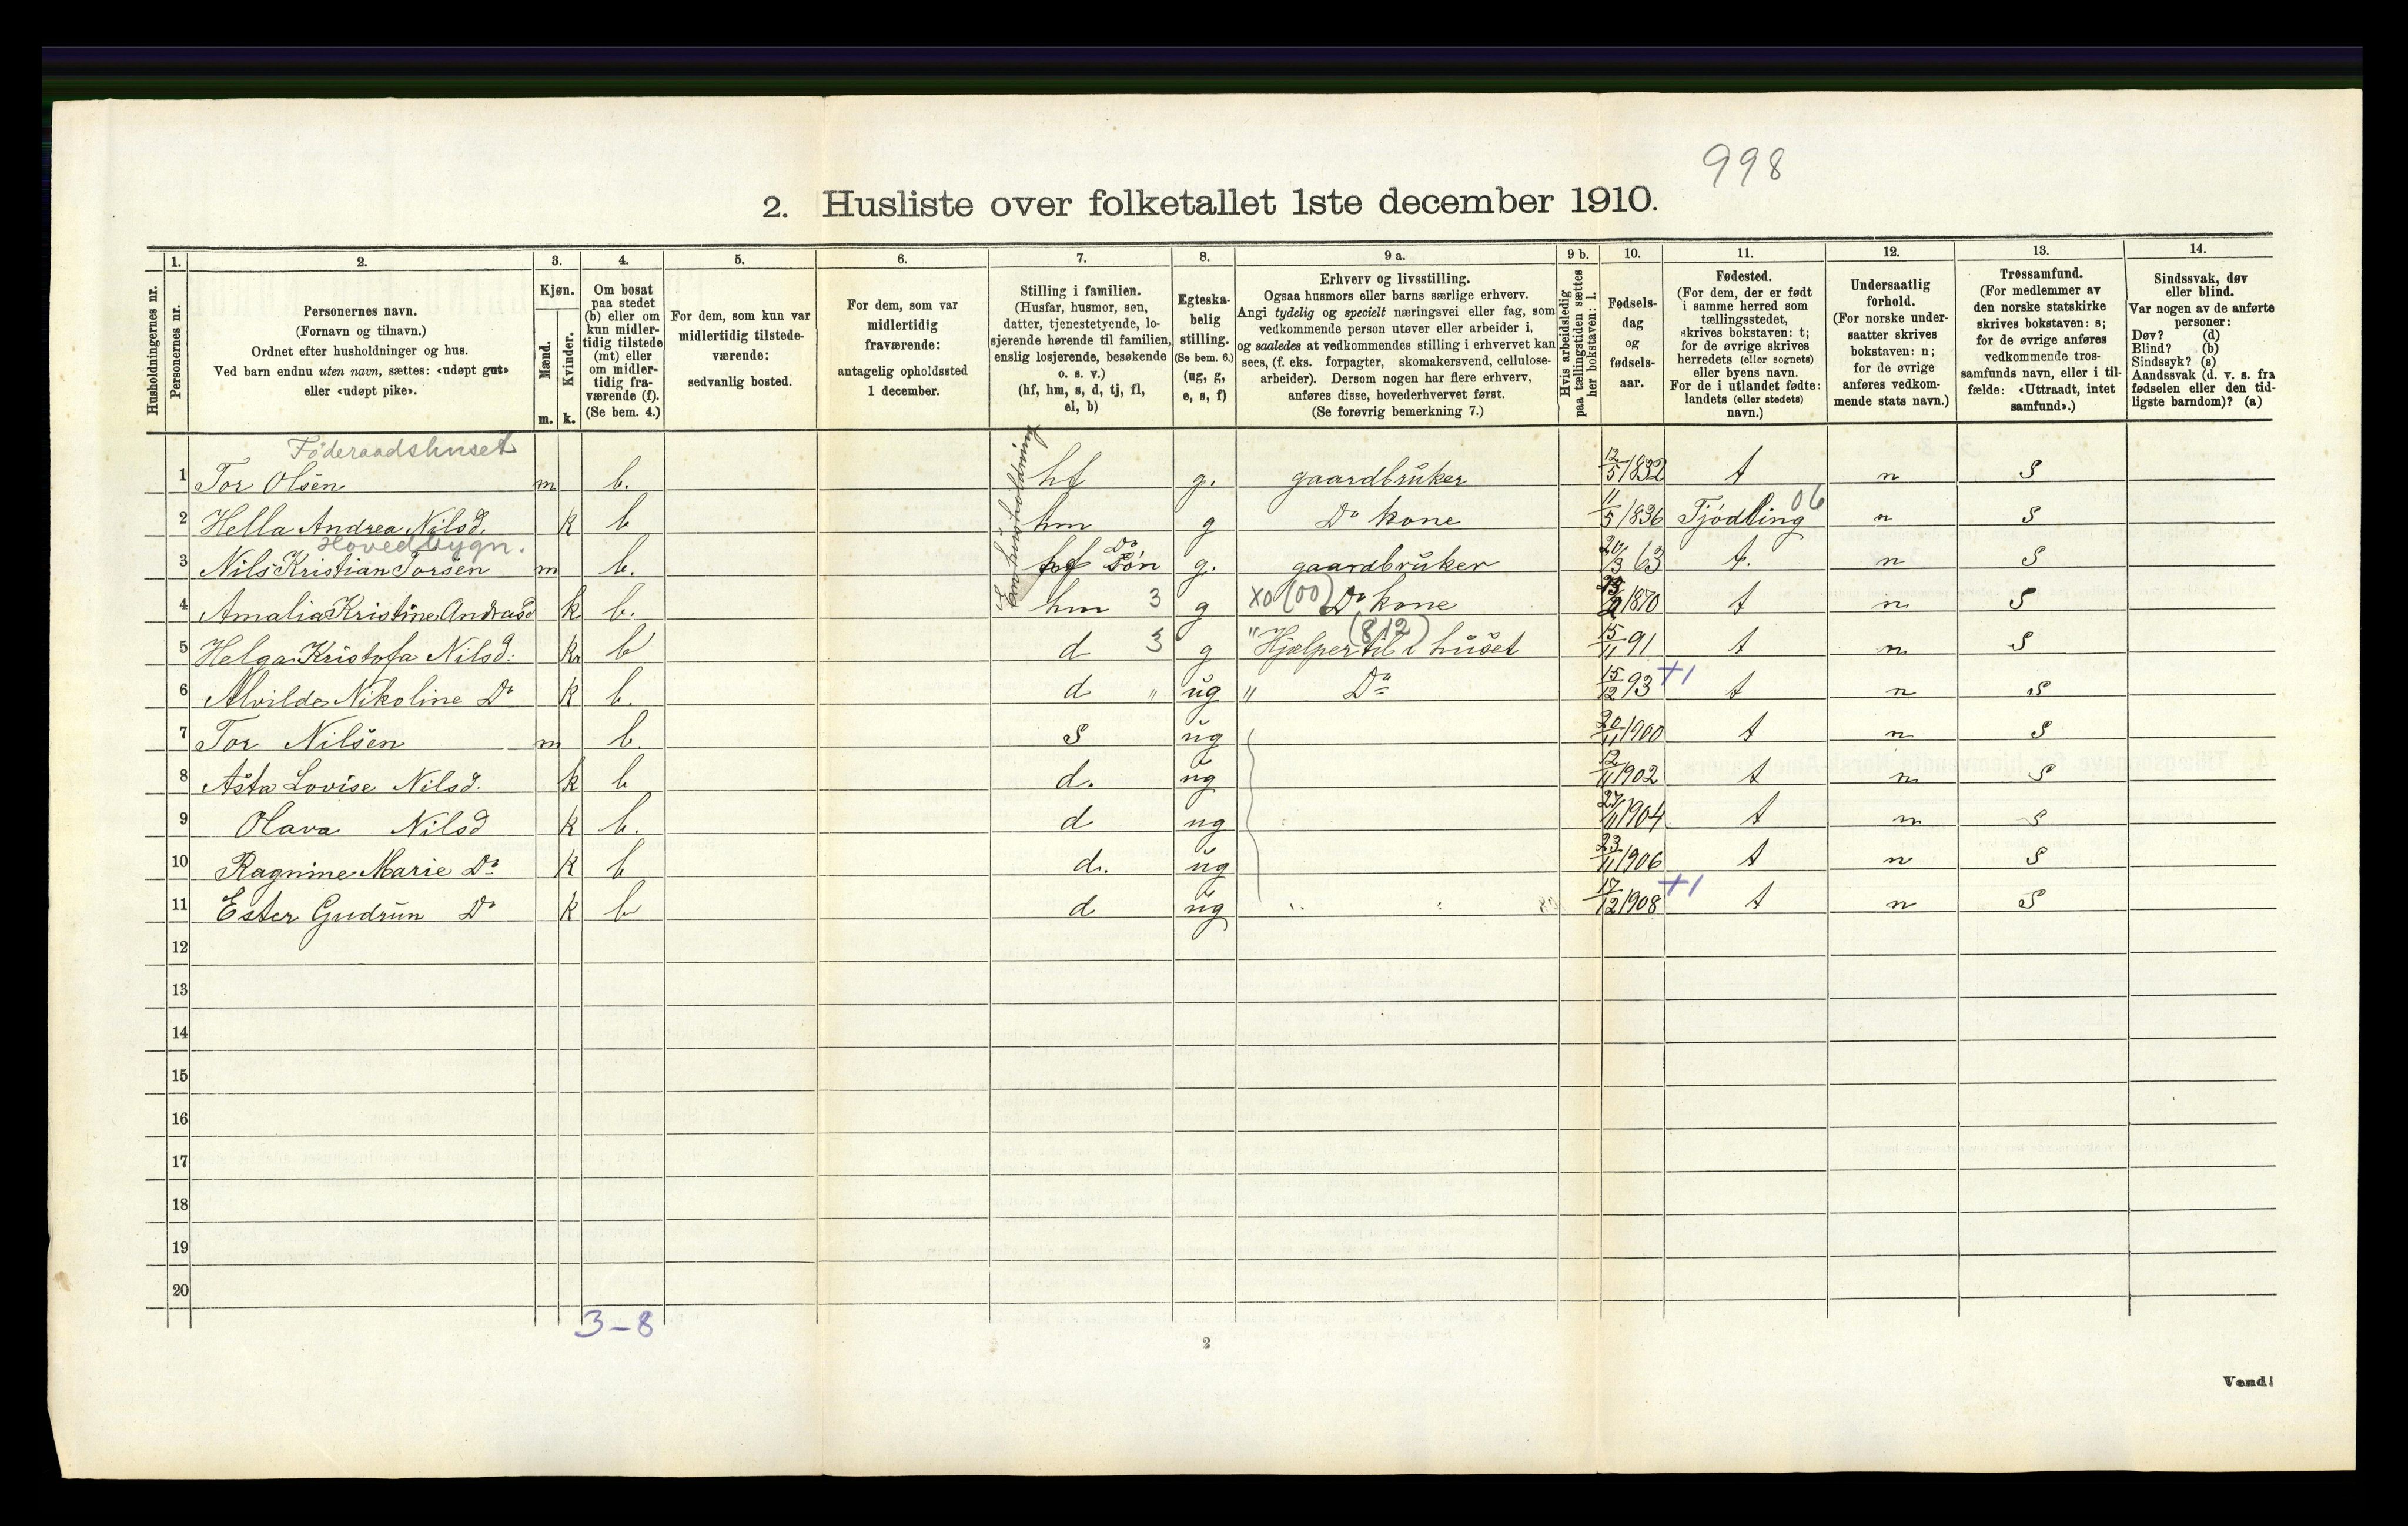 998
2. Husliste over folketallet 1ste december 1910.
Husholdningernes nr.
1. Personernes nr.
2. Personernes navn. (Fornavn og tilnavn.) Ordnet efter husholdninger og hus. Ved barn endnu uten navn, sættes: «udøpt gut» eller «udøpt pike».
3. Kjøn. Mænd. m. Kvinder. k.
4. Om bosat paa stedet (b) eller om kun midlertidig tilstede (mt) eller om midlertidig fraværende (f). (Se bem. 4.)
5. For dem, som kun var midlertidig tilstedeværende: sedvanlig bosted.
6. For dem, som var midlertidig fraværende: antagelig opholdssted 1 december.
7. Stilling i familien. (Husfar, husmor, søn, datter, tjenestetyende, losjerende hørende til familien, enslig losjerende, besøkende o. s. v.) (hf, hm, s, d, tj, fl, el, b)
8. Egteskabelig stilling. (Se bem. 6.) (ug, g, e, s, f)
9 a. Erhverv og livsstilling. Ogsaa husmors eller barns særlige erhverv. Angi tydelig og specielt næringsvei eller fag, som vedkommende person utøver eller arbeider i, og saaledes at vedkommendes stilling i erhvervet kan sees, (f. eks. forpagter, skomakersvend, cellulosearbeider). Dersom nogen har flere erhverv, anføres disse, hovederhvervet først. (Se forøvrig bemerkning 7.)
9 b. Hvis arbeidsledig paa tællingstiden sættes her bokstaven: l.
10. Fødselsdag og fødselsaar.
11. Fødested. (For dem, der er født i samme herred som tællingsstedet, skrives bokstaven: t; for de øvrige skrives herredets (eller sognets) eller byens navn. For de i utlandet fødte: landets (eller stedets) navn.)
12. Undersaatlig forhold. (For norske undersaatter skrives bokstaven: n; for de øvrige anføres vedkommende stats navn.)
13. Trossamfund. (For medlemmer av den norske statskirke skrives bokstaven: s; for de øvrige anføres vedkommende trossamfunds navn, eller i tilfælde: «Uttraadt, intet samfund».)
14. Sindssvak, døv eller blind. Var nogen av de anførte personer: Døv? (d) Blind? (b) Sindssyk? (s) Aandssvak (d. v. s. fra fødselen eller den tidligste barndom)? (a)
Føderaadshuset
1 Tor Olsen m b. hf g. gaardbruker 12/5 1832 t n S
2 Hella Andrea Nilsd. k b hm g Do kone 11/5 1836 Tjödling 06 n S
Hovedbygn.
3 Nils Kristian Torsen m b. Do Sön g. gaardbruker 20/3 63 t. n S
4 Amalia Kristine Andrasd k b. hm 3 g XO (00) Do kone 1870 t n S
5 Helga Kristofa Nilsd. k b d 3 g "Hjælper til i huset (812) 15/11 91 t n S
6 Alvilde Nikoline Do k b. d " ug " Do 15/12 93 +1 t n S
7 Tor Nilsen m b. S ug 20/11 1900 t n S
8 Asta Lovise Nilsd. k b d. ug 12/11 1902 t n S
9 Olava Nilsd k b. d ug 27/11 1904 t n S
10 Ragnine Marie Do k b d. ug 23/11 1906 t n S
11 Ester Gudrun Do k b d ug 17/12 1908 +1 t n S
12
13
14
15
16
17
18
19
20
3-8
2
Vend!